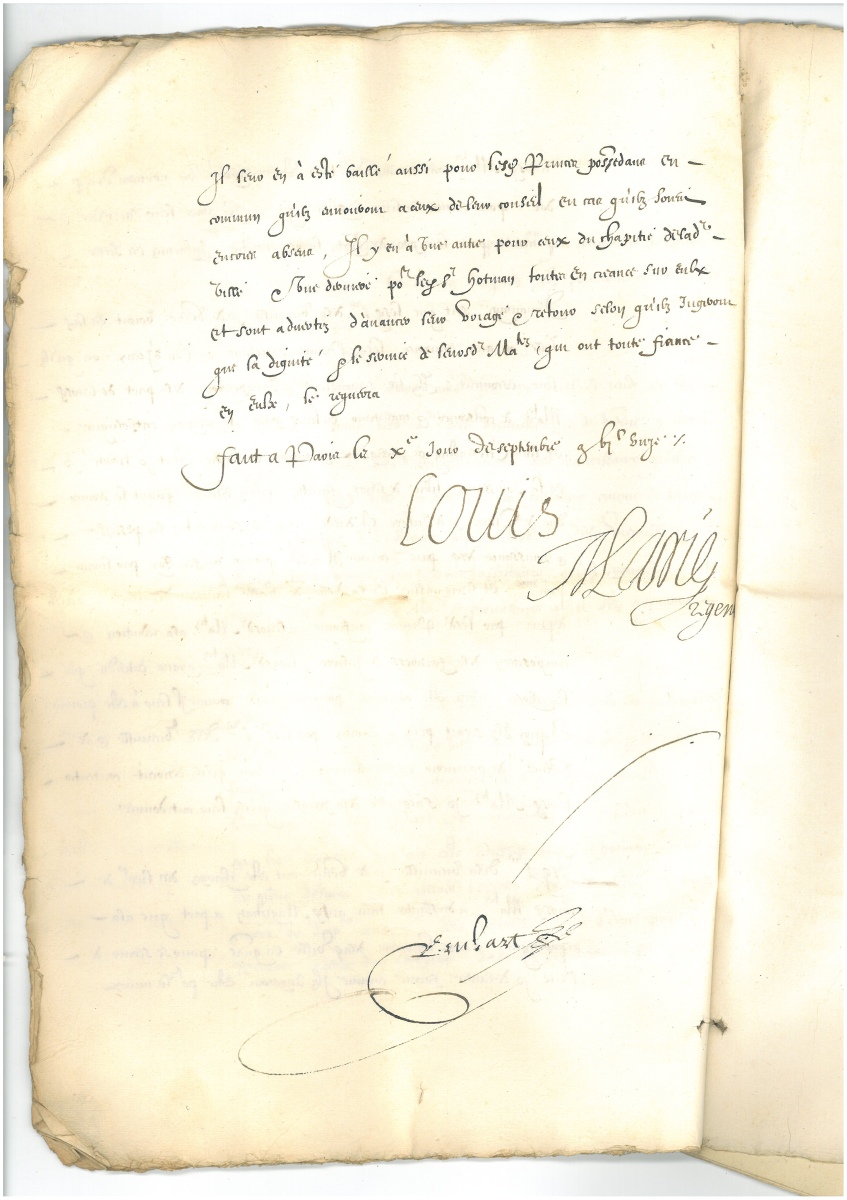 Il leur en à esté baillé aussi pour lesd Princes possedans en
commun qu'ilz envoiront a ceux de leur conseil en cas qu'ilz soient
encores absens, Il y en à une autre pour ceux du chapitre de lad
ville & une derniere por led sr Hotman toutes en creance sur eulx
et sont advertiz d'avancer leur voiage & retour selon qu'ilz Jugeront
que la dignité & le service de leursd Matez, qui ont toute fiance
en eulx, le requerra
faict a Paris le xe Jour de septembre
Louis
Marie
regen